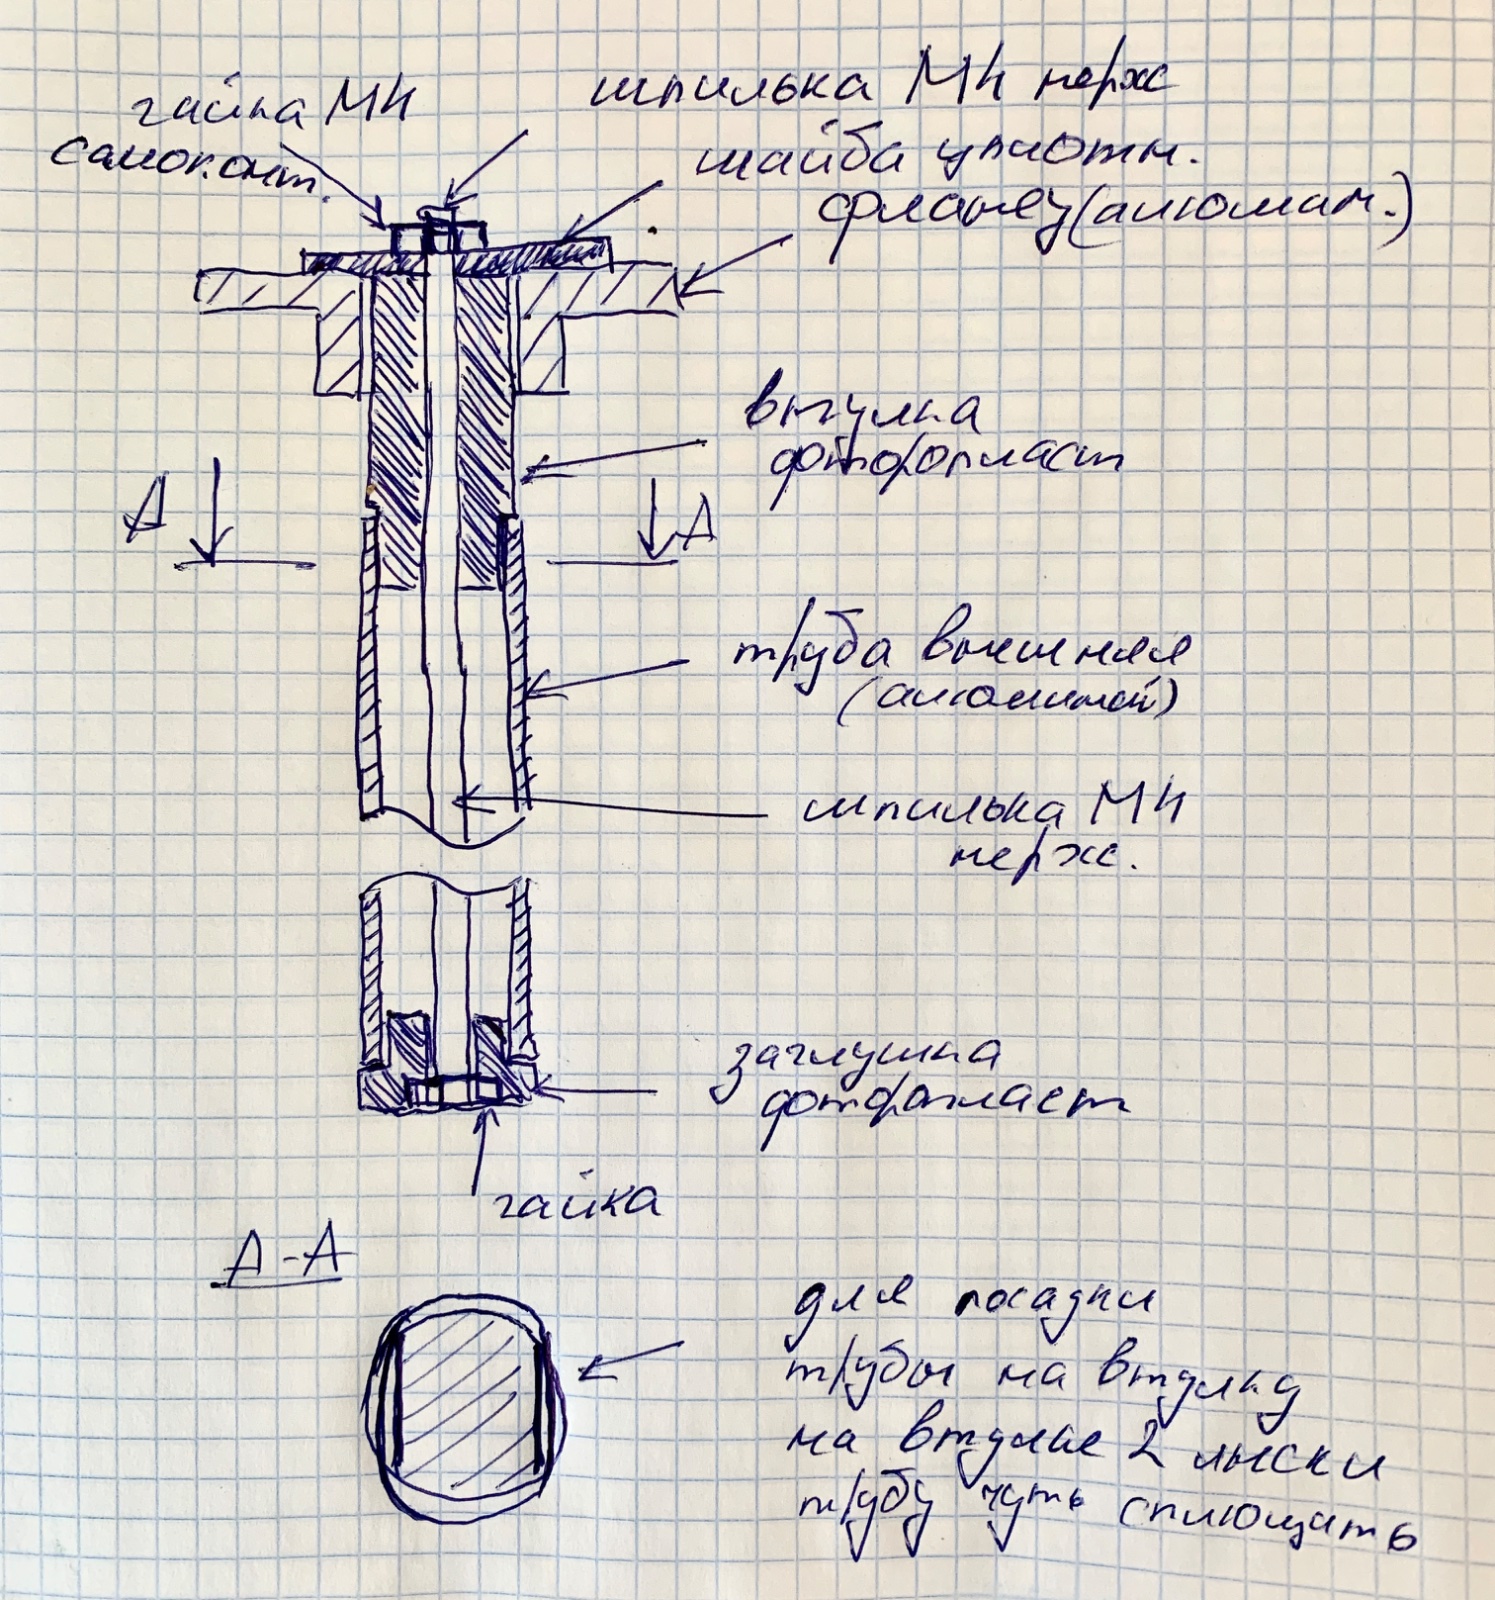 гайка М4
самоконт.
шпилька М4 нерж
шайба уплотн.
фланец (алюмин.)
втулка
фторопласт
А
А
труба внешняя
(алюминий)
шпилька М4
нерж.
заглушка
фторопласт
гайка
А-А
для посадки
трубы на втулку
на втулке 2 лыски
трубу чуть сплющить